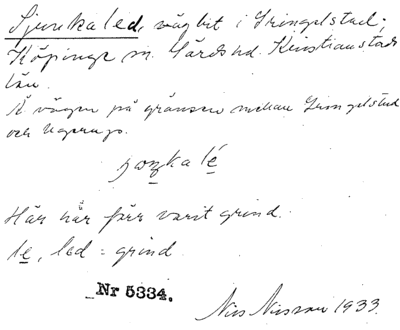 Sjunkaled, vägbit i Gringelstad.
Köpinge sn. Gärds hd. Kristianstads
län.
Å vägen på gränsen mellan Gringelstad
och Ugerups.
le̱
Här har förr varit grind.
le̱, led = grind.
Nr 5334.
Nils Nilsson 1933.